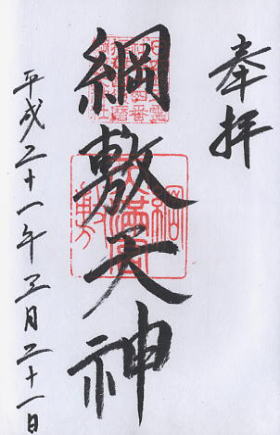 奉拝
綱敷天神
平成二十一年三月二十一日